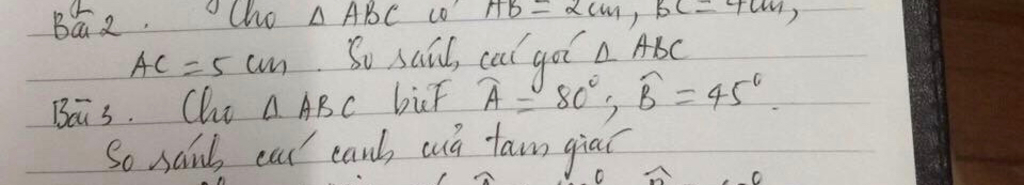 Bài 2. Cho Δ ABC có AB = 2cm, BC = 4cm,
AC = 5 cm. So sánh các góc Δ ABC
Bài 3. Cho Δ ABC biết Â = 80°; B̂ = 45°.
So sánh các cạnh của tam giác